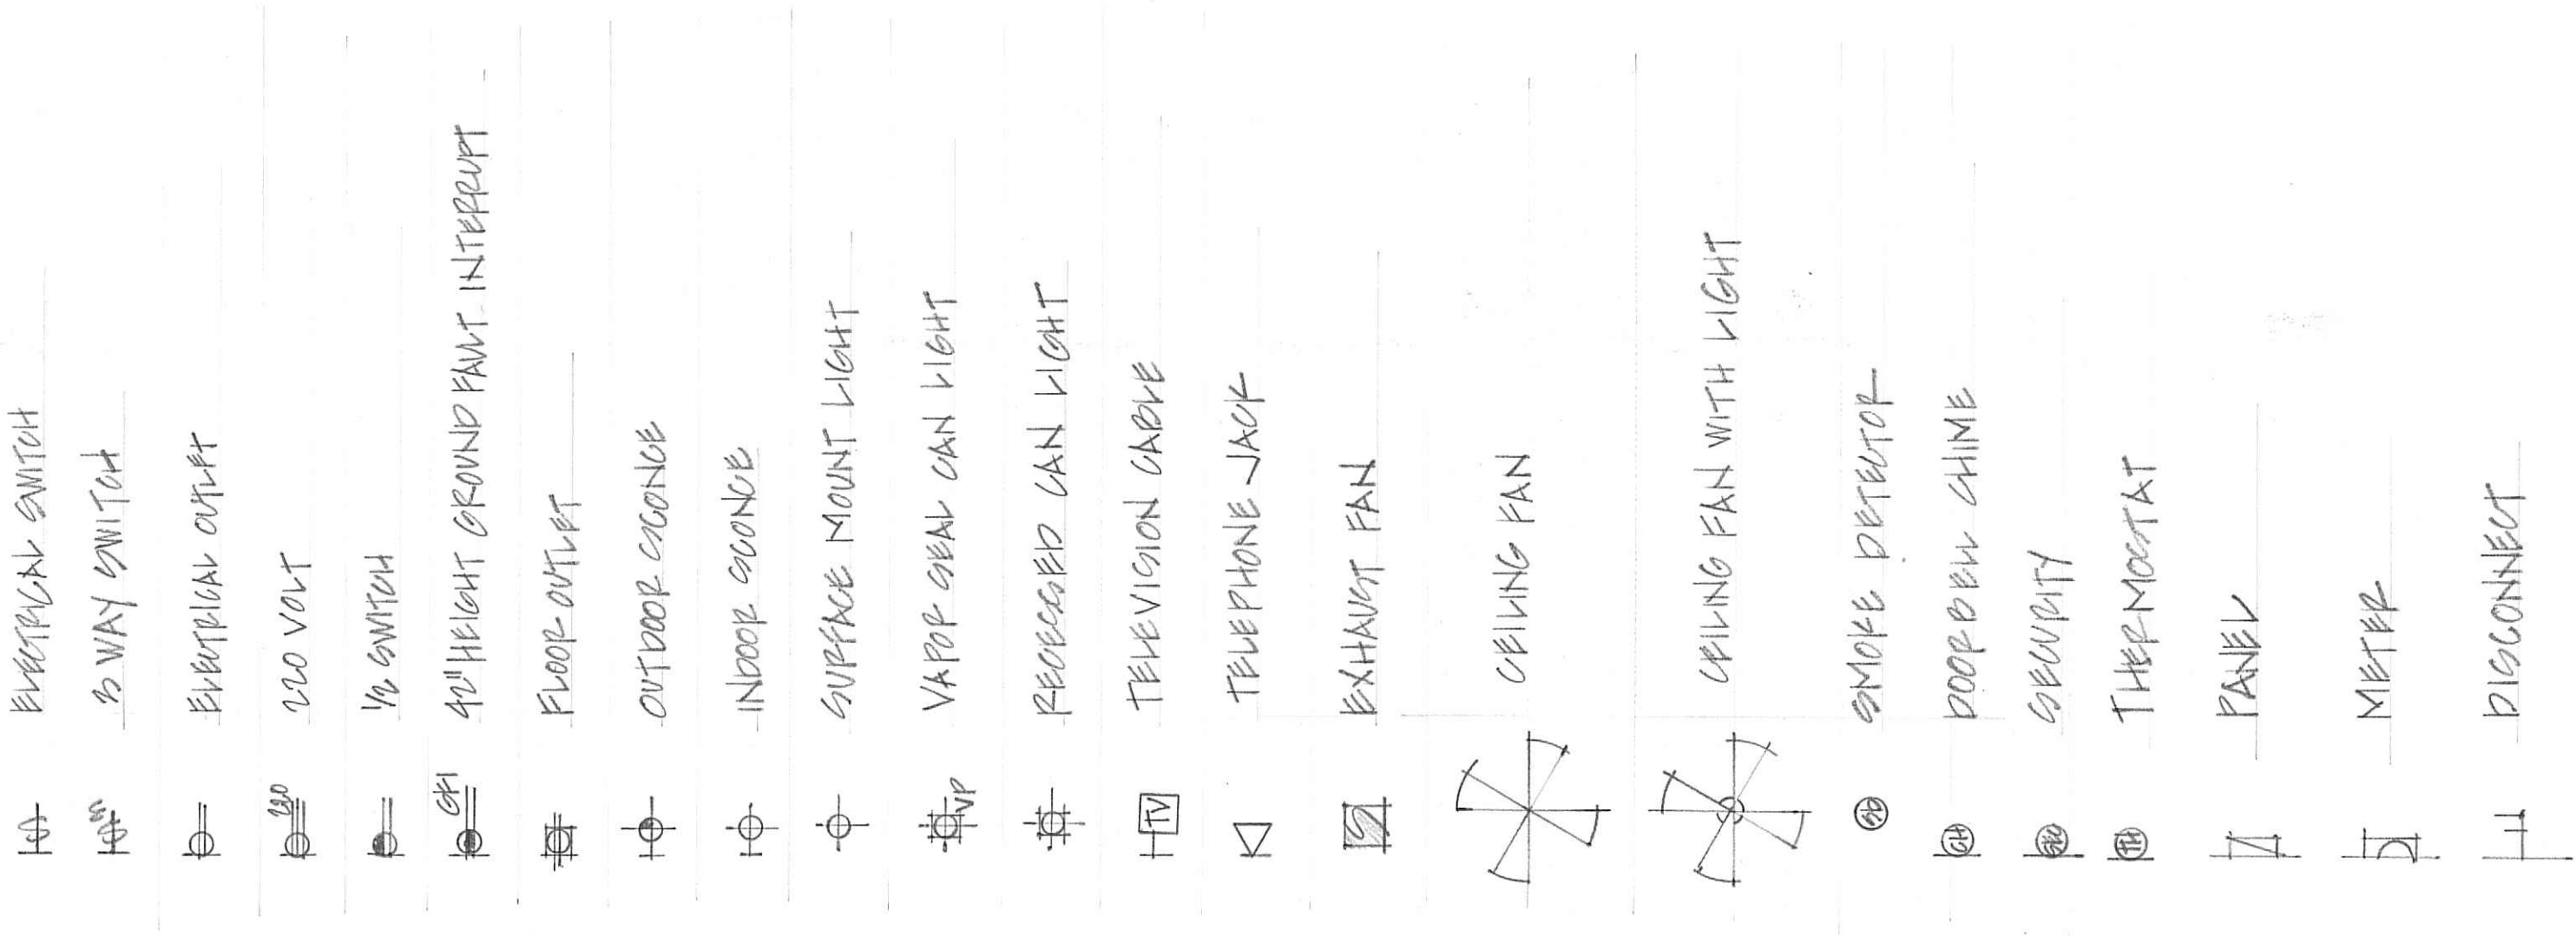 $ ELECTRICAL SWITCH
$3 3 WAY SWITCH
ELECTRICAL OUTLET
220 220 VOLT
1/2 SWITCH
GFI 42" HEIGHT GROUND FAULT INTERRUPT
FLOOR OUTLET
OUTDOOR SCONCE
INDOOR SCONCE
SURFACE MOUNT LIGHT
VP VAPOR SEAL CAN LIGHT
RECESSED CAN LIGHT
TV TELEVISION CABLE
TELEPHONE JACK
EXHAUST FAN
CEILING FAN
CEILING FAN WITH LIGHT
SD SMOKE DETECTOR
CH DOORBELL CHIME
SEC SECURITY
TH THERMOSTAT
PANEL
METER
DISCONNECT